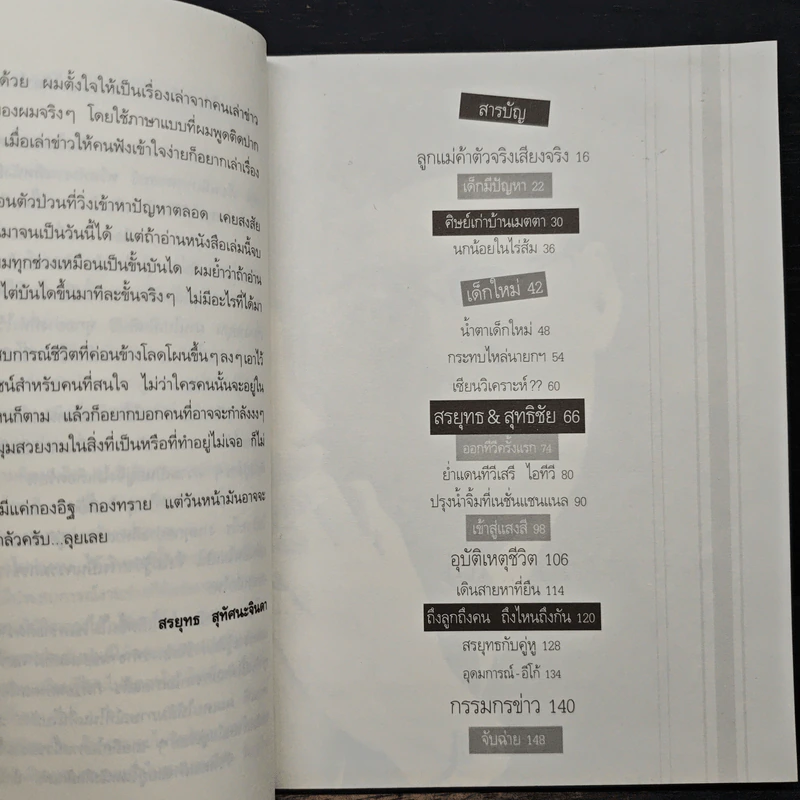 ด้วย ผมตั้งใจให้เป็นเรื่องเล่าจากคนเล่าข่าว
ของผมจริงๆ โดยใช้ภาษาแบบที่ผมพูดติดปาก
เมื่อเล่าข่าวให้คนฟังเข้าใจง่ายก็อยากเล่าเรื่อง
อนตัวป่วนที่วิ่งเข้าหาปัญหาตลอด เคยสงสัย
มาจนเป็นวันนี้ได้ แต่ถ้าอ่านหนังสือเล่มนี้จบ
มทุกช่วงเหมือนเป็นขั้นบันได ผมย้ำว่าถ้าอ่าน
ไต่บันไดขึ้นมาทีละขั้นจริงๆ ไม่มีอะไรที่ได้มา
สบการณ์ชีวิตที่ค่อนข้างโลดโผนขึ้นๆลงๆเอาไว้
ชน์สำหรับคนที่สนใจ ไม่ว่าใครคนนั้นจะอยู่ใน
นก็ตาม แล้วก็อยากบอกคนที่อาจจะกำลังงงๆ
มุมสวยงามในสิ่งที่เป็นหรือที่ทำอยู่ไม่เจอ ก็ไม่
มีแค่กองอิฐ กองทราย แต่วันหน้ามันอาจจะ
กลัวครับ...ลุยเลย
สรยุทธ สุทัศนะจินดา
สารบัญ
ลูกแม่ค้าตัวจริงเสียงจริง 16
เด็กมีปัญหา 22
ศิษย์เก่าบ้านเมตตา 30
นกน้อยในไร่ส้ม 36
เด็กใหม่ 42
น้ำตาเด็กใหม่ 48
กระทบไหล่นายกฯ 54
เซียนวิเคราะห์?? 60
สรยุทธ & สุทธิชัย 66
ออกทีวีครั้งแรก 74
ย่ำแดนทีวีเสรี ไอทีวี 80
ปรุงน้ำจิ้มที่เนชั่นแชนแนล 90
เข้าสู่แสงสี 98
อุบัติเหตุชีวิต 106
เดินสายหาที่ยืน 114
ถึงลูกถึงคน ถึงไหนถึงกัน 120
สรยุทธกับคู่หู 128
อุดมการณ์-อีโก้ 134
กรรมกรข่าว 140
จับฉ่าย 148